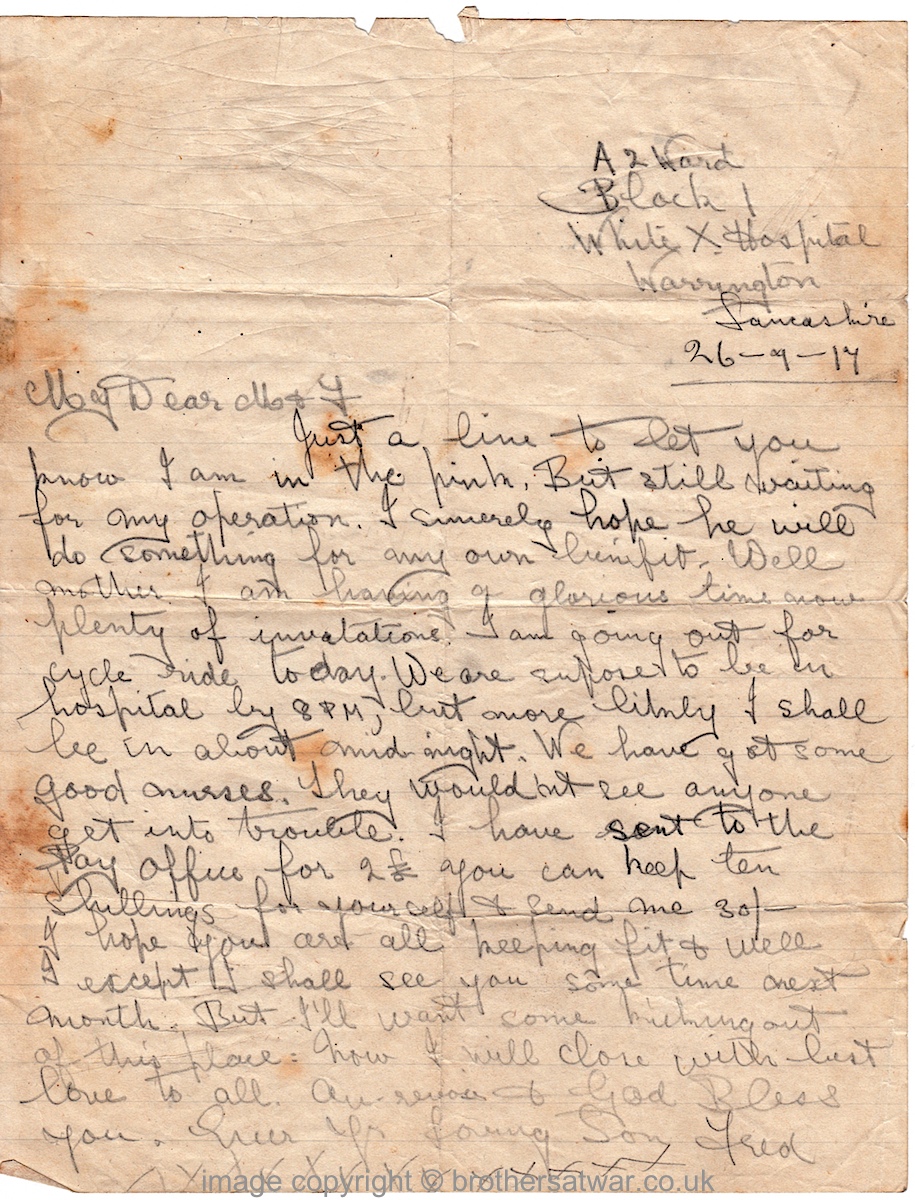 A 2 Ward
Block 1
White X. Hospital
Warrington
Lancashire
26-9-17
My Dear M & F
Just a line to let you
know I am in the pink. But still waiting
for my operation. I sincerely hope he will
do something for my own binifit. Well
mother I am having a glorious time now
plenty of invatations. I am going out for
cycle ride today. We are supose to be in
hospital by 8 PM, but more likely I shall
be in about mid-night. We have got some
good nurses. They would'nt see anyone
get into trouble. I have sent to the
Pay Office for 2£ you can keep ten
shillings for yourself & send me 30/-
I hope you are all keeping fit & well
I except I shall see you some time next
month. But I'll want some kicking out
of this place. Now I will close with best
love to all. Au-revoir & God Bless
you. Ever Yr Loving Son Fred
XXXXXXXXXX
image copyright © brothersatwar.co.uk